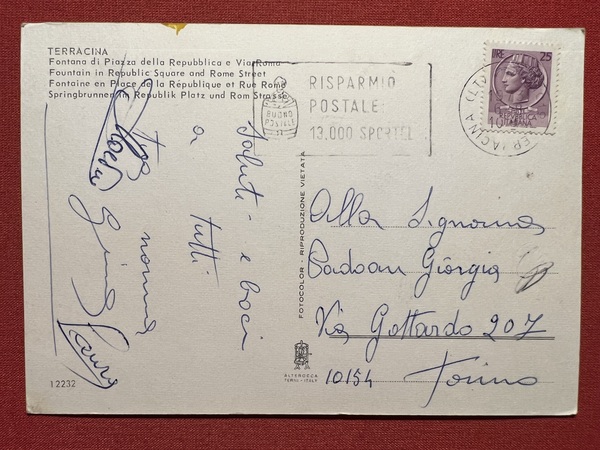 TERRACINA
Fontana di Piazza della Repubblica e Via Roma
Fountain in Republic Square and Rome Street
Fontaine en Place de la République et Rue Rome
Springbrunnen in Republik Platz und Rom Strasse
BUONO
POSTALE
RISPARMIO
POSTALE
13.000 SPORTELLI
LIRE 25
TERRACINA (LT)
Saluti e baci
a tutti
nonna
Gina
FOTOCOLOR - RIPRODUZIONE VIETATA
Alla Signorina
Padoan Giorgia
Via Gottardo 207
10154 Torino
ALTEROCCA
TERNI - ITALY
12232